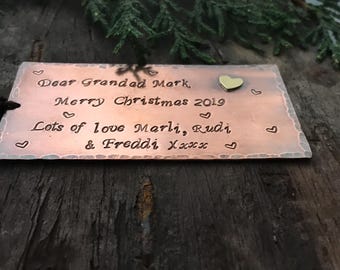 Dear Grandad Mark
Merry Christmas 2019
Lots of love Marli, Rudi
& Freddi Xxxx